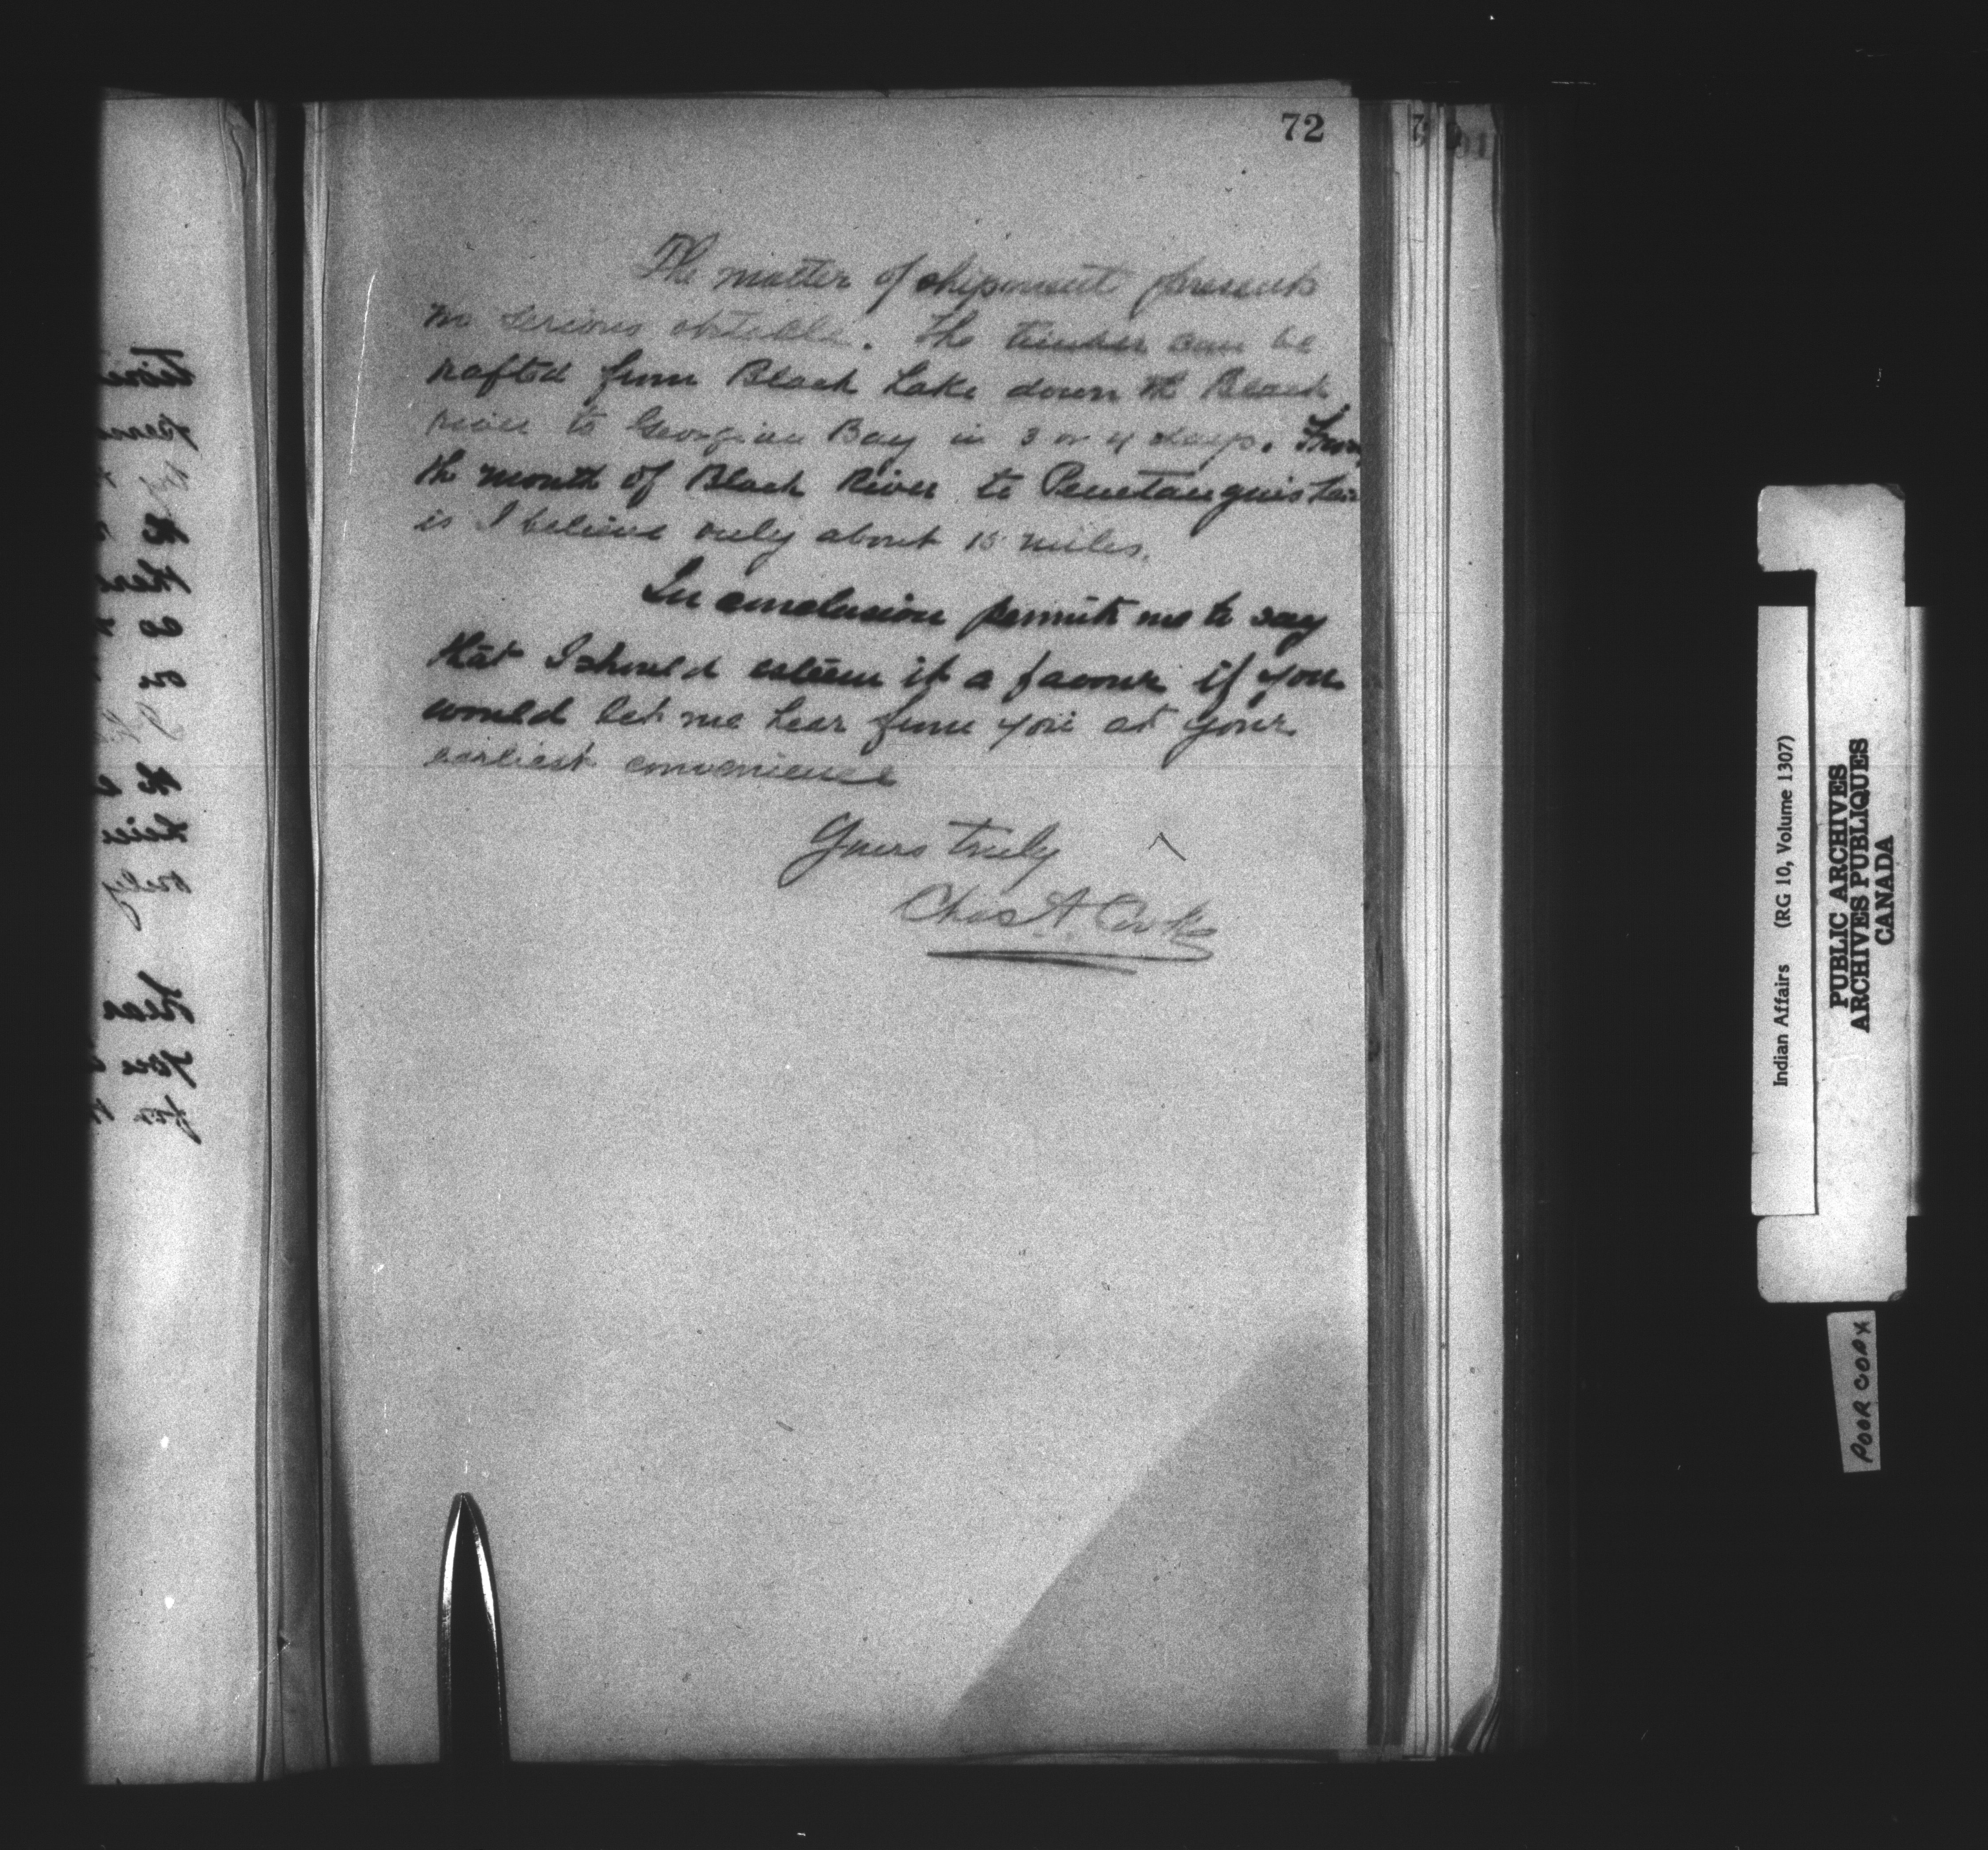 72
The matter of shipment presents
no serious obstacle. The timber can be
rafted from Black Lake down the Black
river to Georgian Bay in 3 or 4 days. From
the mouth of Black River to Penetanguishene
is I believe only about 15 miles.
In conclusion permit me to say
that I should esteem it a favour if you
would let me hear from you at your
earliest convenience
Yours truly
Chas A. Cooke
Indian Affairs (RG 10, Volume 1307)
PUBLIC ARCHIVES
ARCHIVES PUBLIQUES
CANADA
POOR COPY